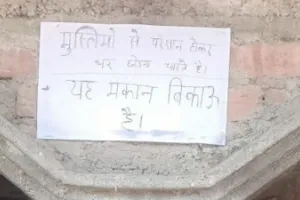 मुस्लिमो से परेशान होकर
घर छोड़ जा रहे है।
यह मकान बिकाऊ
है।